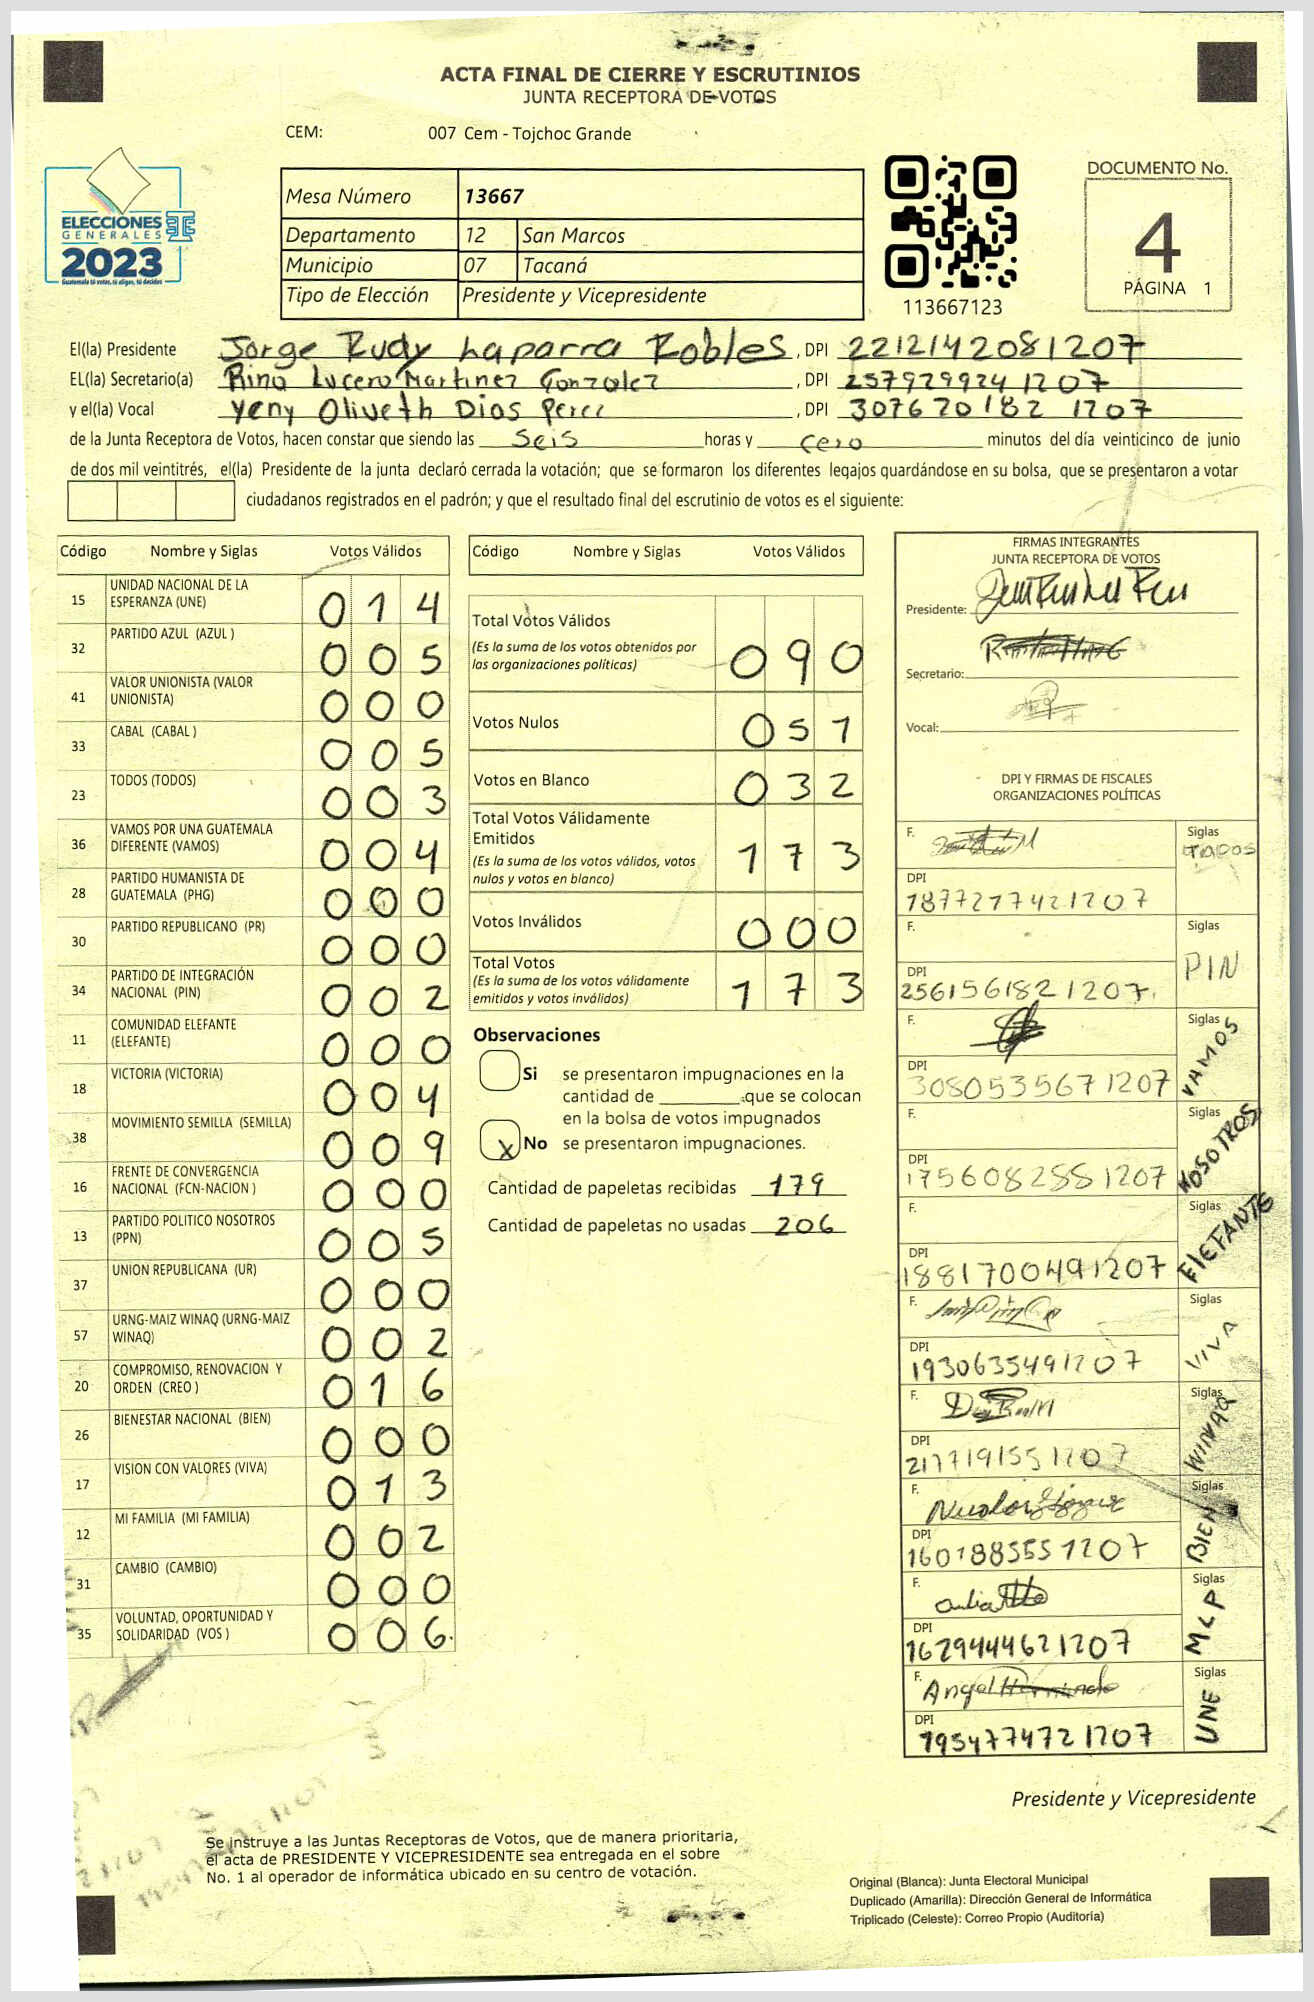 ACTA FINAL DE CIERRE Y ESCRUTINIOS
JUNTA RECEPTORA DE VOTOS
CEM: 007 Cem - Tojchoc Grande
ELECCIONES
GENERALES
2023
Guatemala tú votas, tú eliges, tú decides
Mesa Número 13667
Departamento 12 San Marcos
Municipio 07 Tacaná
Tipo de Elección Presidente y Vicepresidente
113667123
DOCUMENTO No.
4
PÁGINA 1
El(la) Presidente Jorge Rudy Laparra Robles, DPI 2212142081207
EL(la) Secretario(a) Rina Lucero Martinez Gonzalez, DPI 257929924 1207
y el(la) Vocal Yeny Oliveth Dios Perez, DPI 307670182 1207
de la Junta Receptora de Votos, hacen constar que siendo las Seis horas y cero minutos del día veinticinco de junio
de dos mil veintitrés, el(la) Presidente de la junta declaró cerrada la votación; que se formaron los diferentes legajos quardándose en su bolsa, que se presentaron a votar
ciudadanos registrados en el padrón; y que el resultado final del escrutinio de votos es el siguiente:
Código Nombre y Siglas Votos Válidos
15 UNIDAD NACIONAL DE LA ESPERANZA (UNE) 014
32 PARTIDO AZUL (AZUL ) 005
41 VALOR UNIONISTA (VALOR UNIONISTA) 000
33 CABAL (CABAL ) 005
23 TODOS (TODOS) 003
36 VAMOS POR UNA GUATEMALA DIFERENTE (VAMOS) 004
28 PARTIDO HUMANISTA DE GUATEMALA (PHG) 000
30 PARTIDO REPUBLICANO (PR) 000
34 PARTIDO DE INTEGRACIÓN NACIONAL (PIN) 002
11 COMUNIDAD ELEFANTE (ELEFANTE) 000
18 VICTORIA (VICTORIA) 004
38 MOVIMIENTO SEMILLA (SEMILLA) 009
16 FRENTE DE CONVERGENCIA NACIONAL (FCN-NACION ) 000
13 PARTIDO POLITICO NOSOTROS (PPN) 005
37 UNION REPUBLICANA (UR) 000
57 URNG-MAIZ WINAQ (URNG-MAIZ WINAQ) 002
20 COMPROMISO, RENOVACION Y ORDEN (CREO ) 016
26 BIENESTAR NACIONAL (BIEN) 000
17 VISION CON VALORES (VIVA) 013
12 MI FAMILIA (MI FAMILIA) 002
31 CAMBIO (CAMBIO) 000
35 VOLUNTAD, OPORTUNIDAD Y SOLIDARIDAD (VOS ) 006
Código Nombre y Siglas Votos Válidos
Total Votos Válidos
(Es la suma de los votos obtenidos por las organizaciones políticas) 090
Votos Nulos 051
Votos en Blanco 032
Total Votos Válidamente Emitidos
(Es la suma de los votos válidos, votos nulos y votos en blanco) 173
Votos Inválidos 000
Total Votos
(Es la suma de los votos válidamente emitidos y votos inválidos) 173
Observaciones
Si se presentaron impugnaciones en la
cantidad de ________ que se colocan
en la bolsa de votos impugnados
x No se presentaron impugnaciones.
Cantidad de papeletas recibidas 179
Cantidad de papeletas no usadas 206
FIRMAS INTEGRANTES
JUNTA RECEPTORA DE VOTOS
Presidente:
Secretario:
Vocal:
DPI Y FIRMAS DE FISCALES
ORGANIZACIONES POLÍTICAS
F. Siglas TODOS
DPI 1877277421207
F. Siglas PIN
DPI 2561561821207
F. Siglas VAMOS
DPI 3080535671207
F. Siglas NOSOTROS
DPI 1756082881207
F. Siglas ElEFANTE
DPI 1881700491207
F. Siglas VIVA
DPI 1930635491207
F. Siglas WINAQ
DPI 2177191551207
F. Siglas BIEN
DPI 1601885551207
F. Siglas MLP
DPI 1629444621207
F. Angel Siglas UNE
DPI 1954774721207
Presidente y Vicepresidente
Se instruye a las Juntas Receptoras de Votos, que de manera prioritaria,
el acta de PRESIDENTE Y VICEPRESIDENTE sea entregada en el sobre
No. 1 al operador de informática ubicado en su centro de votación.
Original (Blanca): Junta Electoral Municipal
Duplicado (Amarilla): Dirección General de Informática
Triplicado (Celeste): Correo Propio (Auditoría)